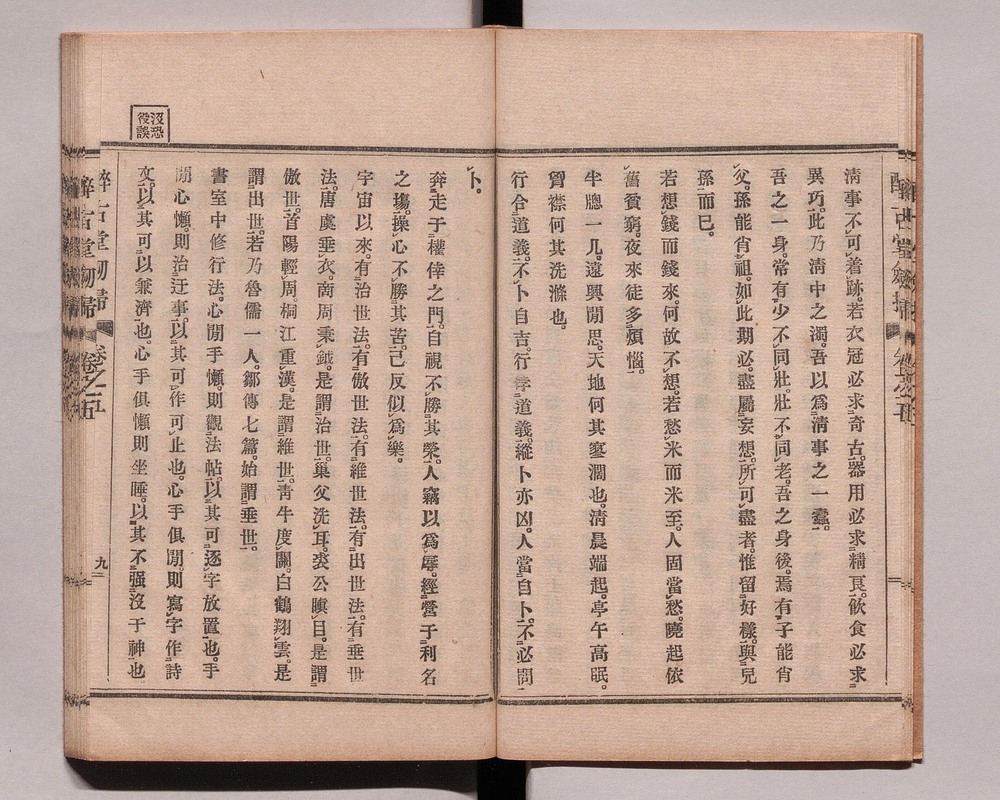 清事不可着跡。若衣冠必求奇古。器用必求精良。飲食必求
異巧。此乃淸中之濁。吾以爲淸事之一蠹。
吾之一身。常有少不同壯。壯不同老。吾之身後。焉有子能肖
父。孫能肖祖。如此期必。盡屬妄想。所可盡者。惟留好樣。與兒
孫而已。
若想錢而錢來。何故不想。若愁米而米至。人固當愁。曉起依
舊貧窮。夜來徒多煩惱。
半牕一几。遠興閒思。天地何其寥濶也。淸晨端起。亭午高眠。
胷襟何其洗滌也。
行合道義。不卜自吉。行悖道義。縱卜亦凶。人當自卜。不必問
卜。
奔走于權倖之門。自視不勝其榮。人竊以爲辱。經營于利名
之塲。操心不勝其苦。己反似爲樂。
宇宙以來。有治世法。有傲世法。有維世法。有出世法。有垂世
法。唐虞垂衣。商周秉鉞。是謂治世。巢父洗耳。裘公瞋目。是謂
傲世。首陽輕周。桐江重漢。是謂維世。靑牛度關。白鶴翔雲。是
謂出世。若乃魯儒一人。鄒傳七篇。始謂垂世。
書室中修行法。心閒手懶。則觀法帖。以其可逐字放置也。手
閒心懶。則治迂事。以其可作可止也。心手俱閒。則寫字作詩
文。以其可以兼濟也。心手俱懶則坐睡。以其不强沒于神也
沒恐
役誤
醉古堂劒掃
卷之五
九